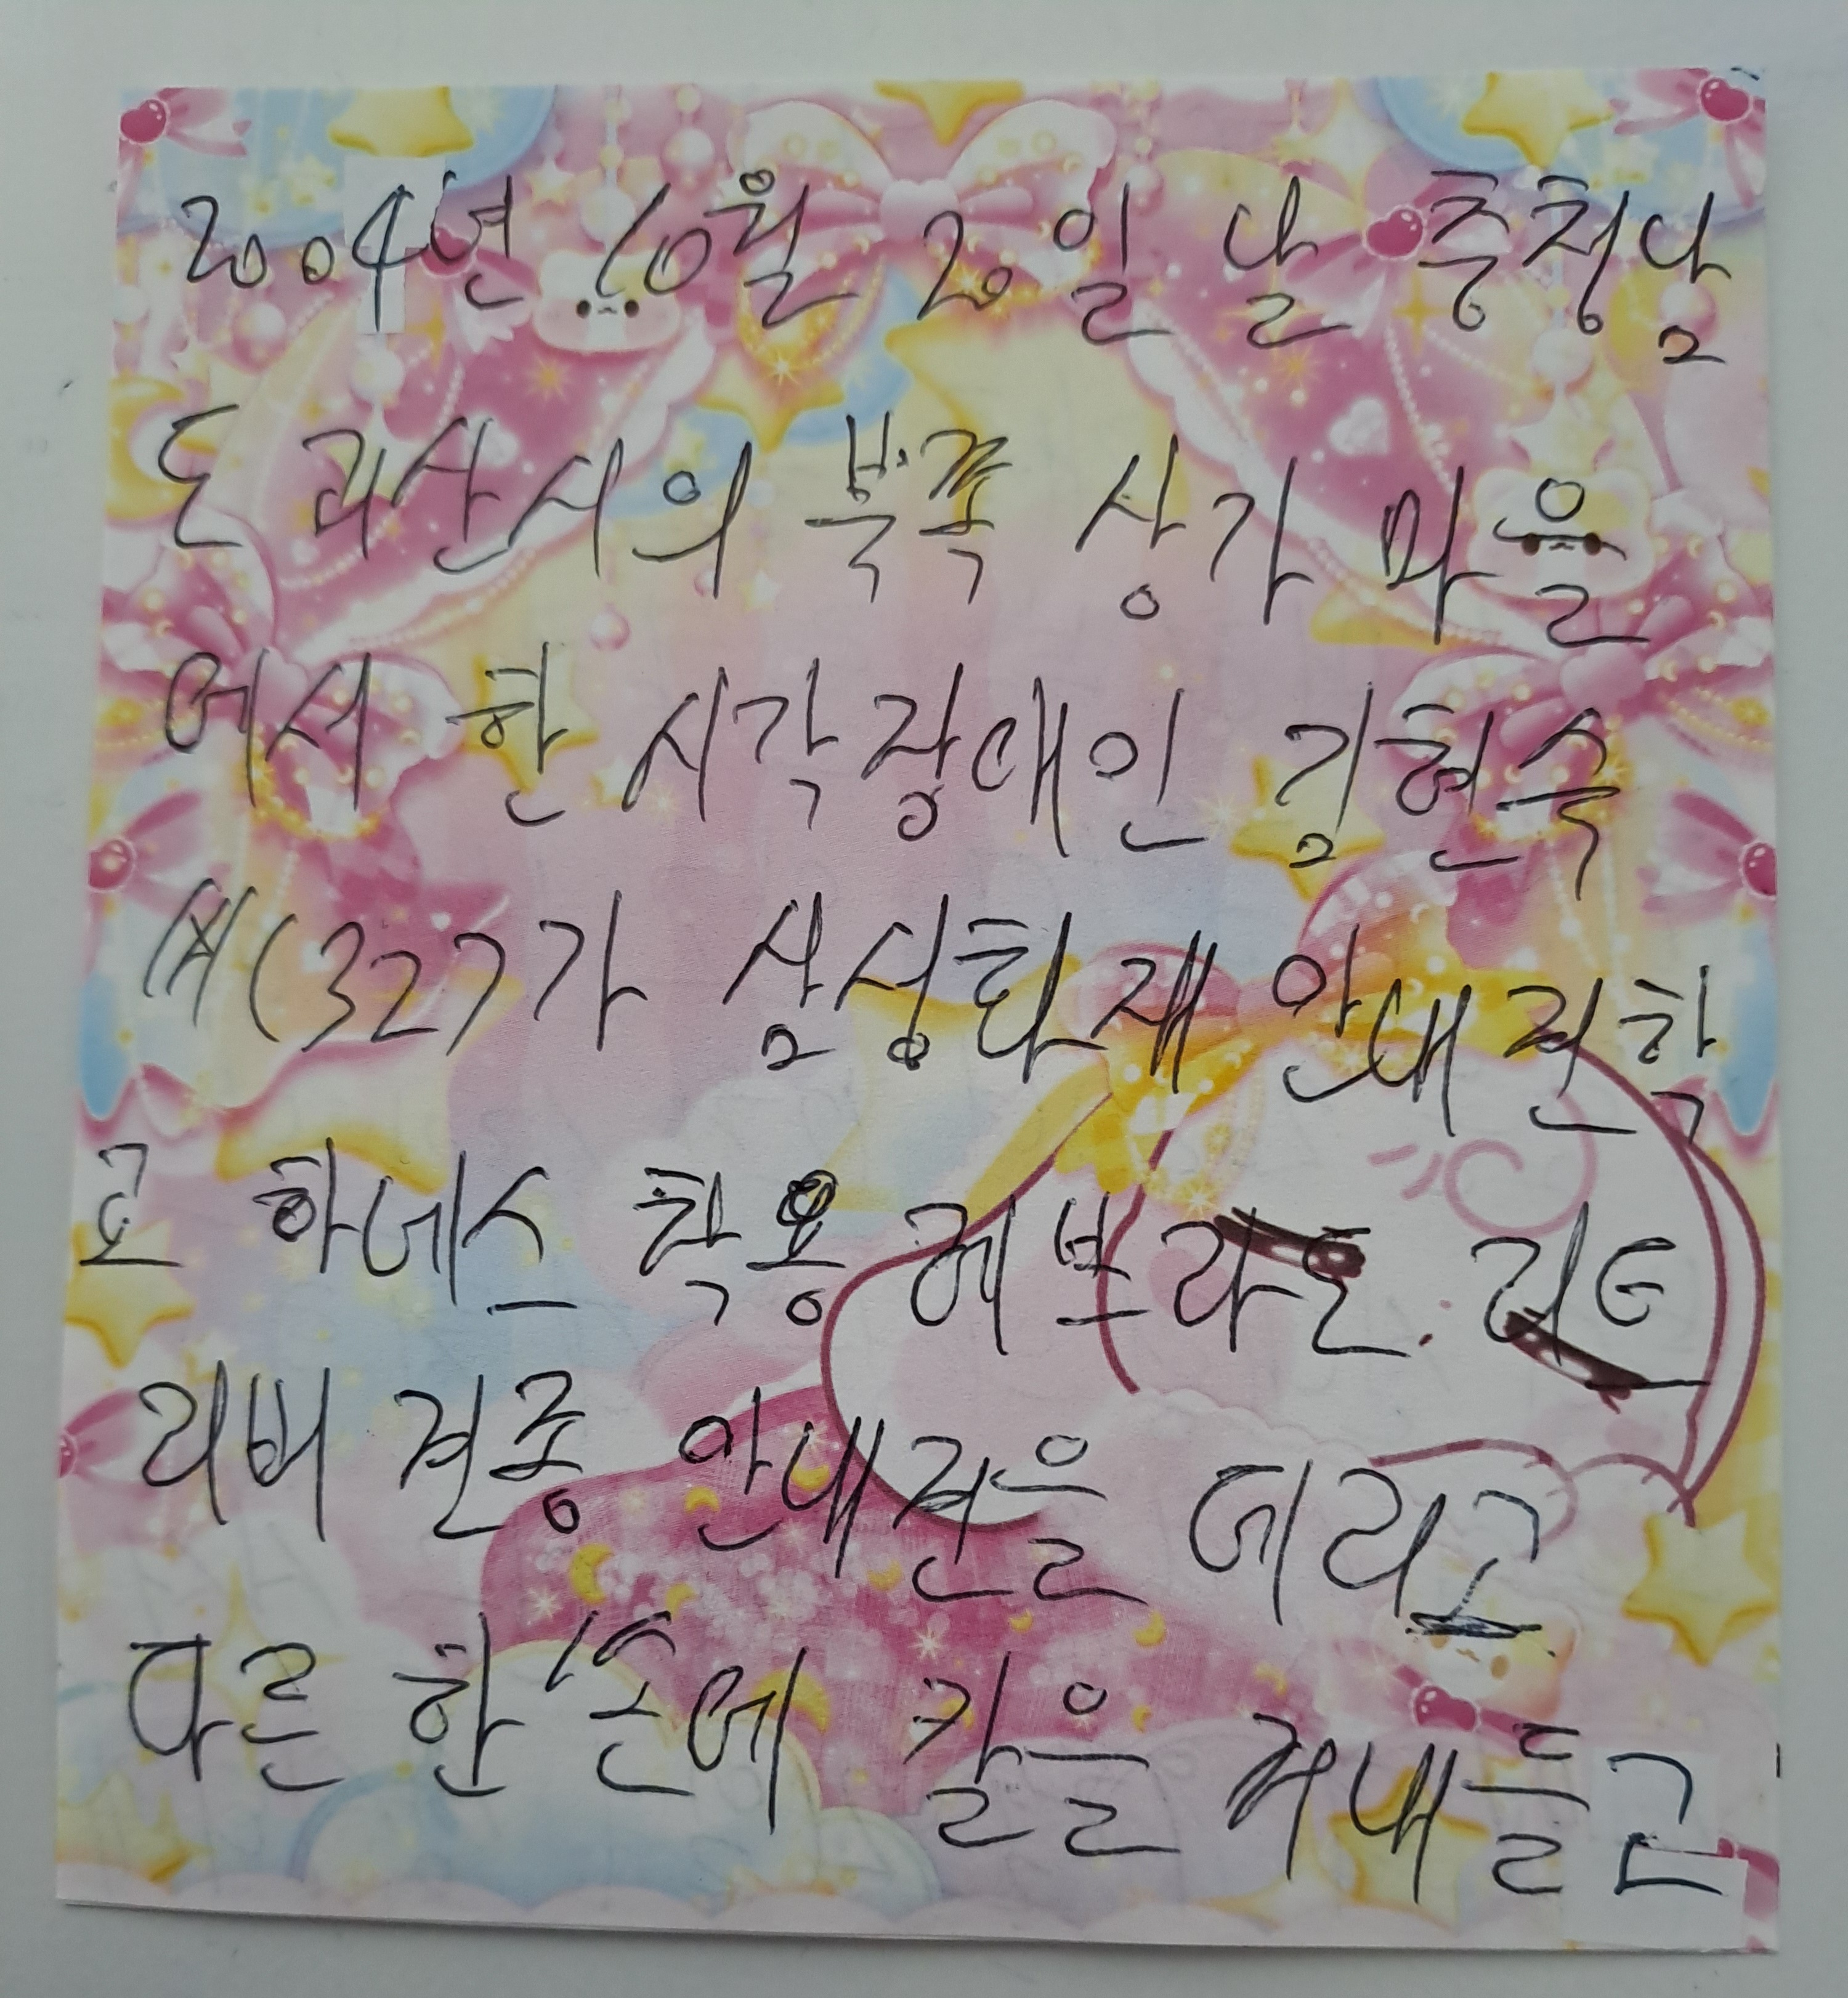 2004년 10월 20일 날 충청남
도 괴산시의 북쪽 상가 마을
에서 한 시각장애인 김현숙
씨(32)가 삼성화재 안내견학
교 하네스 착용 레브라도 리트
리버 견종 안내견을 데리고
다른 한 손에 칼을 꺼내들고